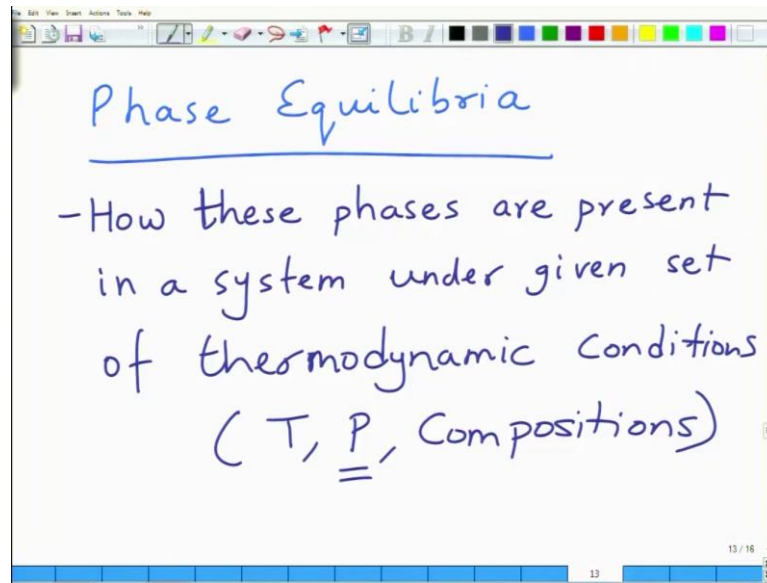 File Edit View Insert Actions Tools Help
B I
Phase Equilibria
-How these phases are present
in a system under given set
of thermodynamic conditions
( T, P, Compositions)
13 / 16
13